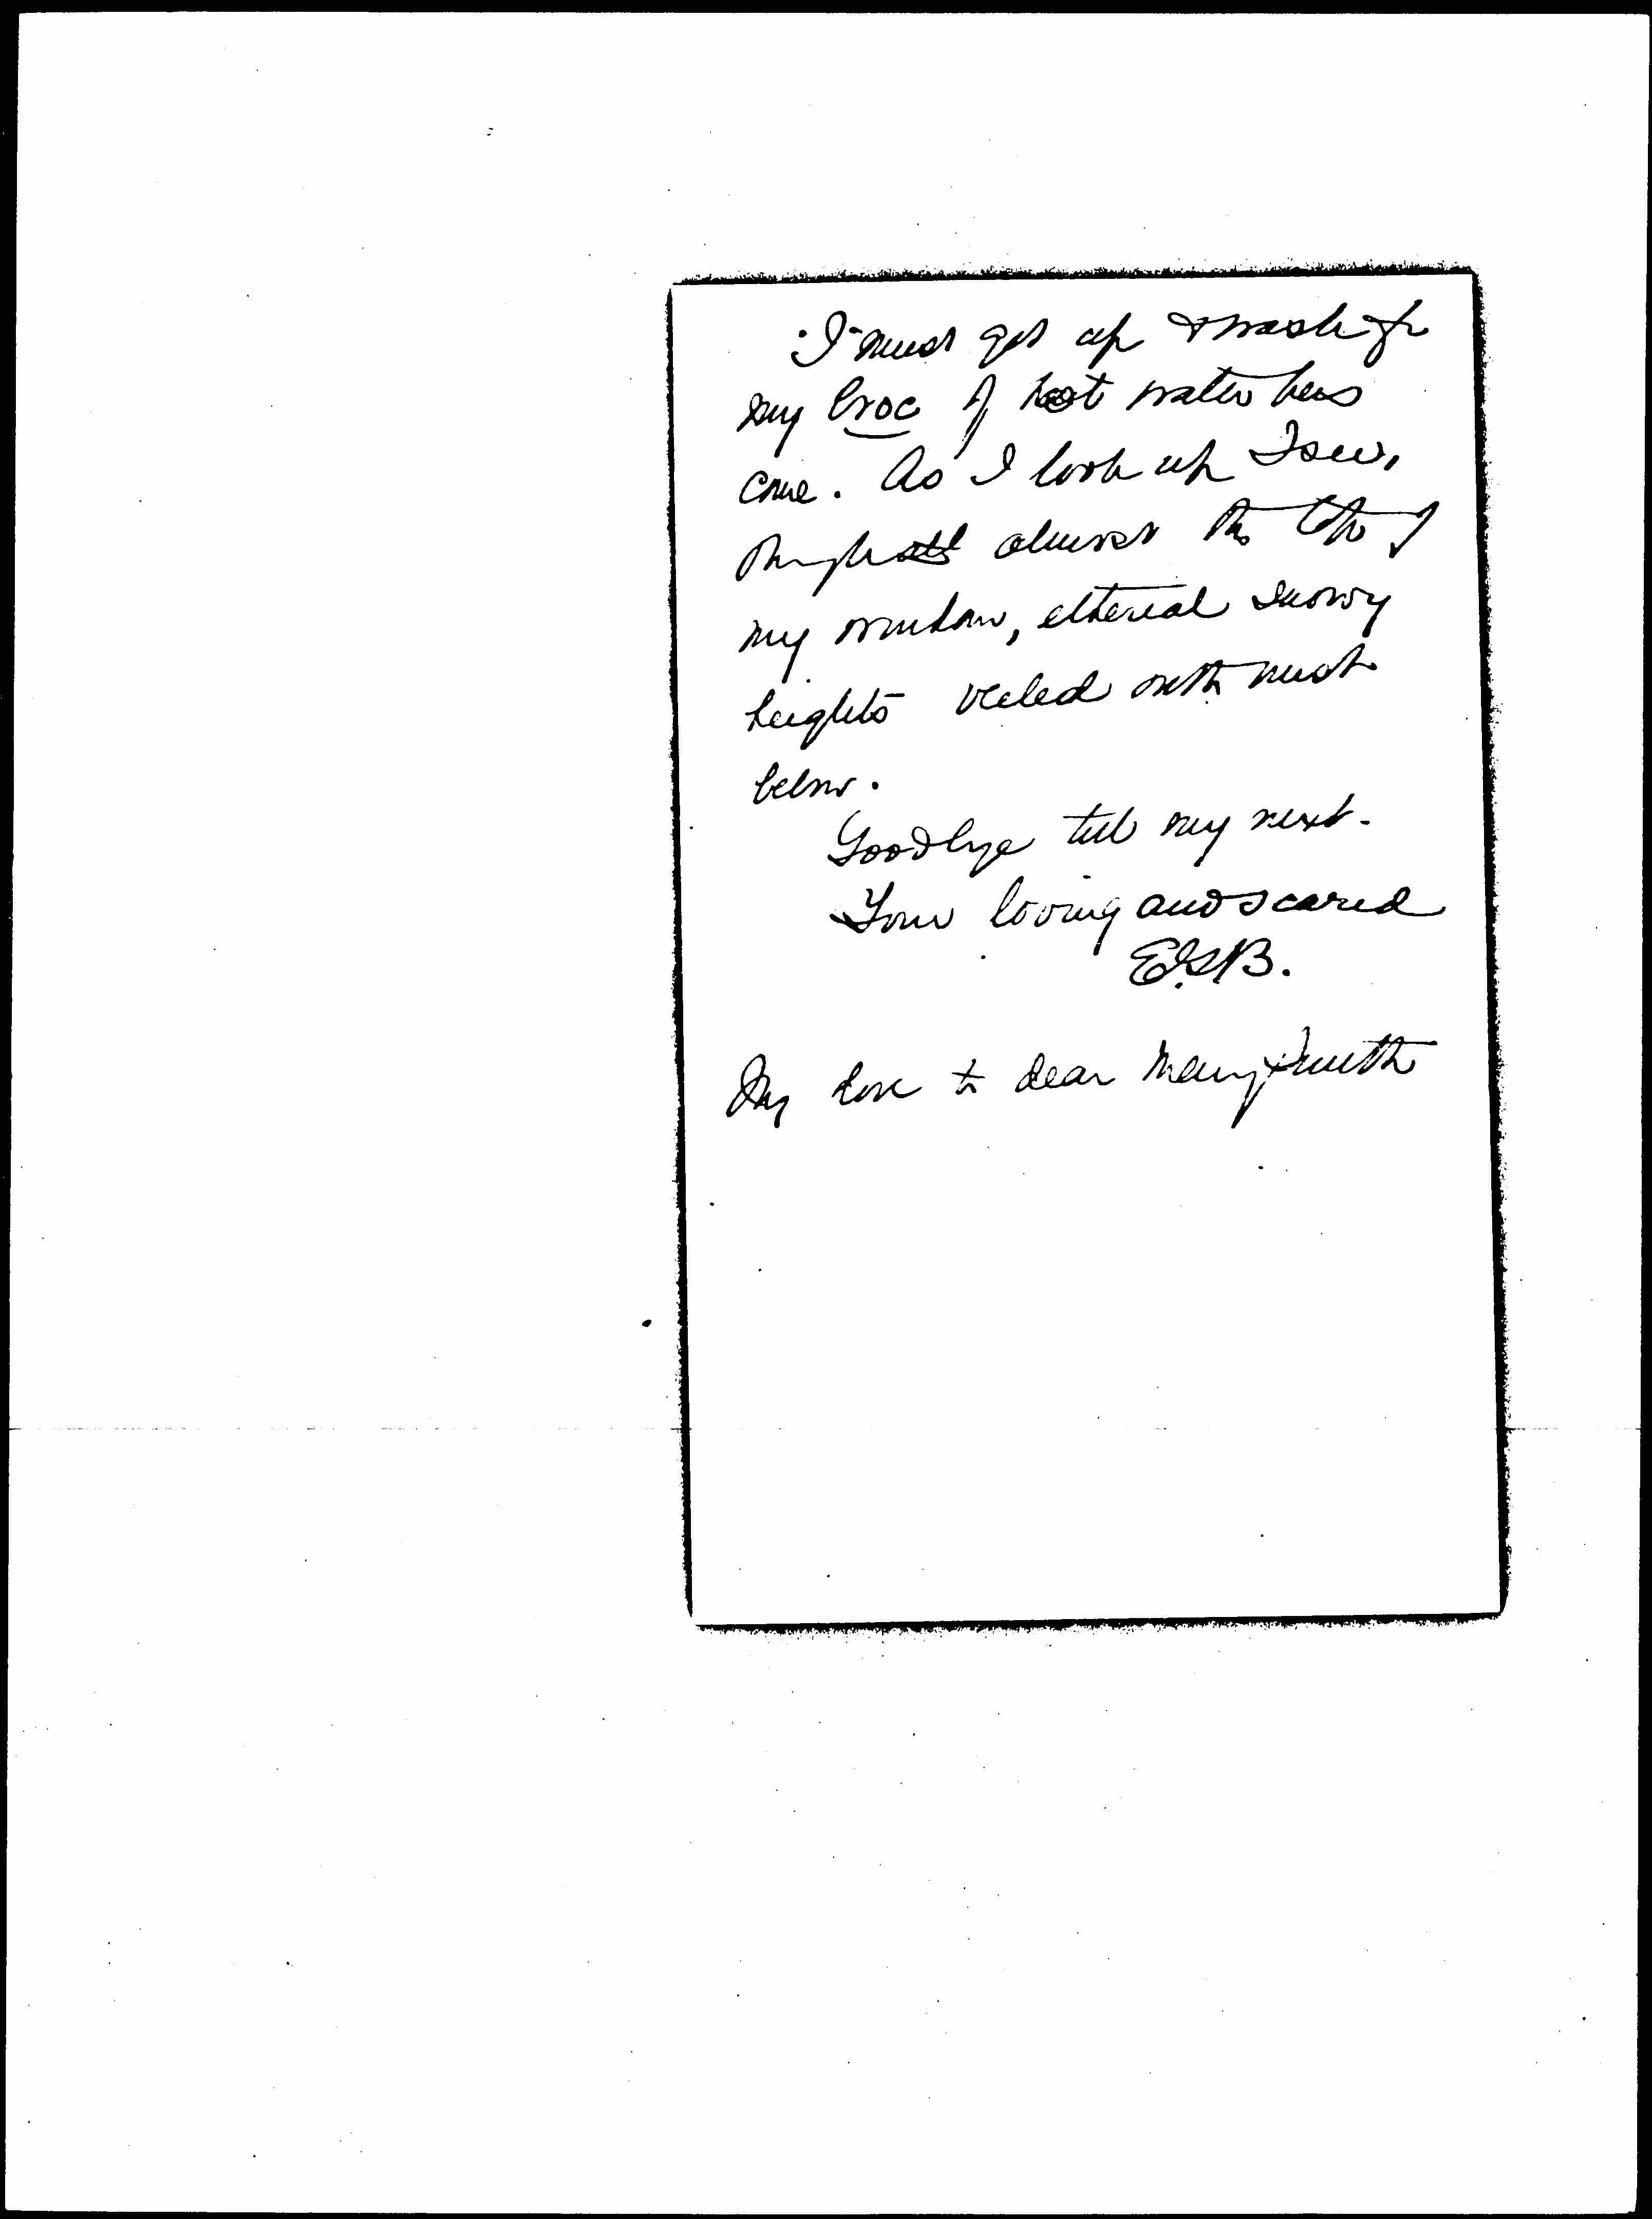 I must get up & wash for
my broc of hot water has
come. As I look up I see,
through almost the top of
my window, ethereal snowy
heights veiled with mist
below.
Goodbye till my next.
Your loving and scared
E.S.B.
My love to dear Mary Smith